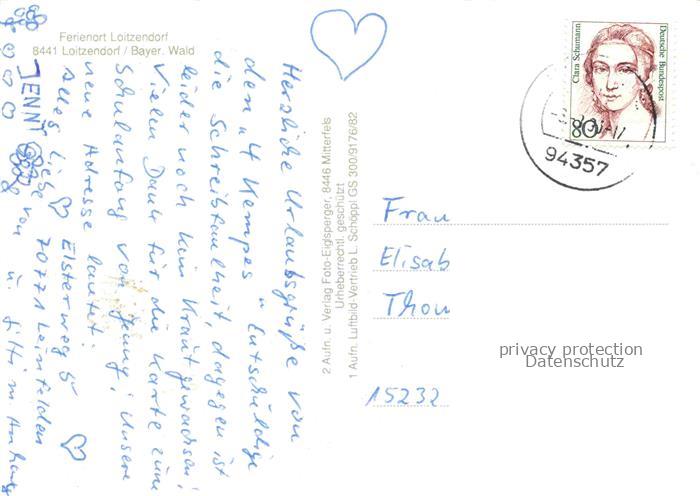 Ferienort Loitzendorf
8441 Loitzendorf / Bayer. Wald
Herzliche Urlaubsgrüße von
den "4 Kempes" Entschuldige
die Schreibfaulheit, dagegen ist
leider noch kein Kraut gewachsen!
Vielen Dank für die Karte zum
Schulanfang von Jenny! Unsere
neue Adresse lautet:
Elsterweg 5
70771 Leinfelden
Alles Liebe von
JENNY
u. im Anhang
2 Aufn. u. Verlag Foto-Eiglsperger, 8446 Mitterfels
Urheberrechtl. geschützt
1 Aufn. Luftbild-Vertrieb L. Schöppl GS 300/9176/82
Clara Schumann
Deutsche Bundespost
80
94357
Frau
Elisab
Thon
15232
privacy protection
Datenschutz